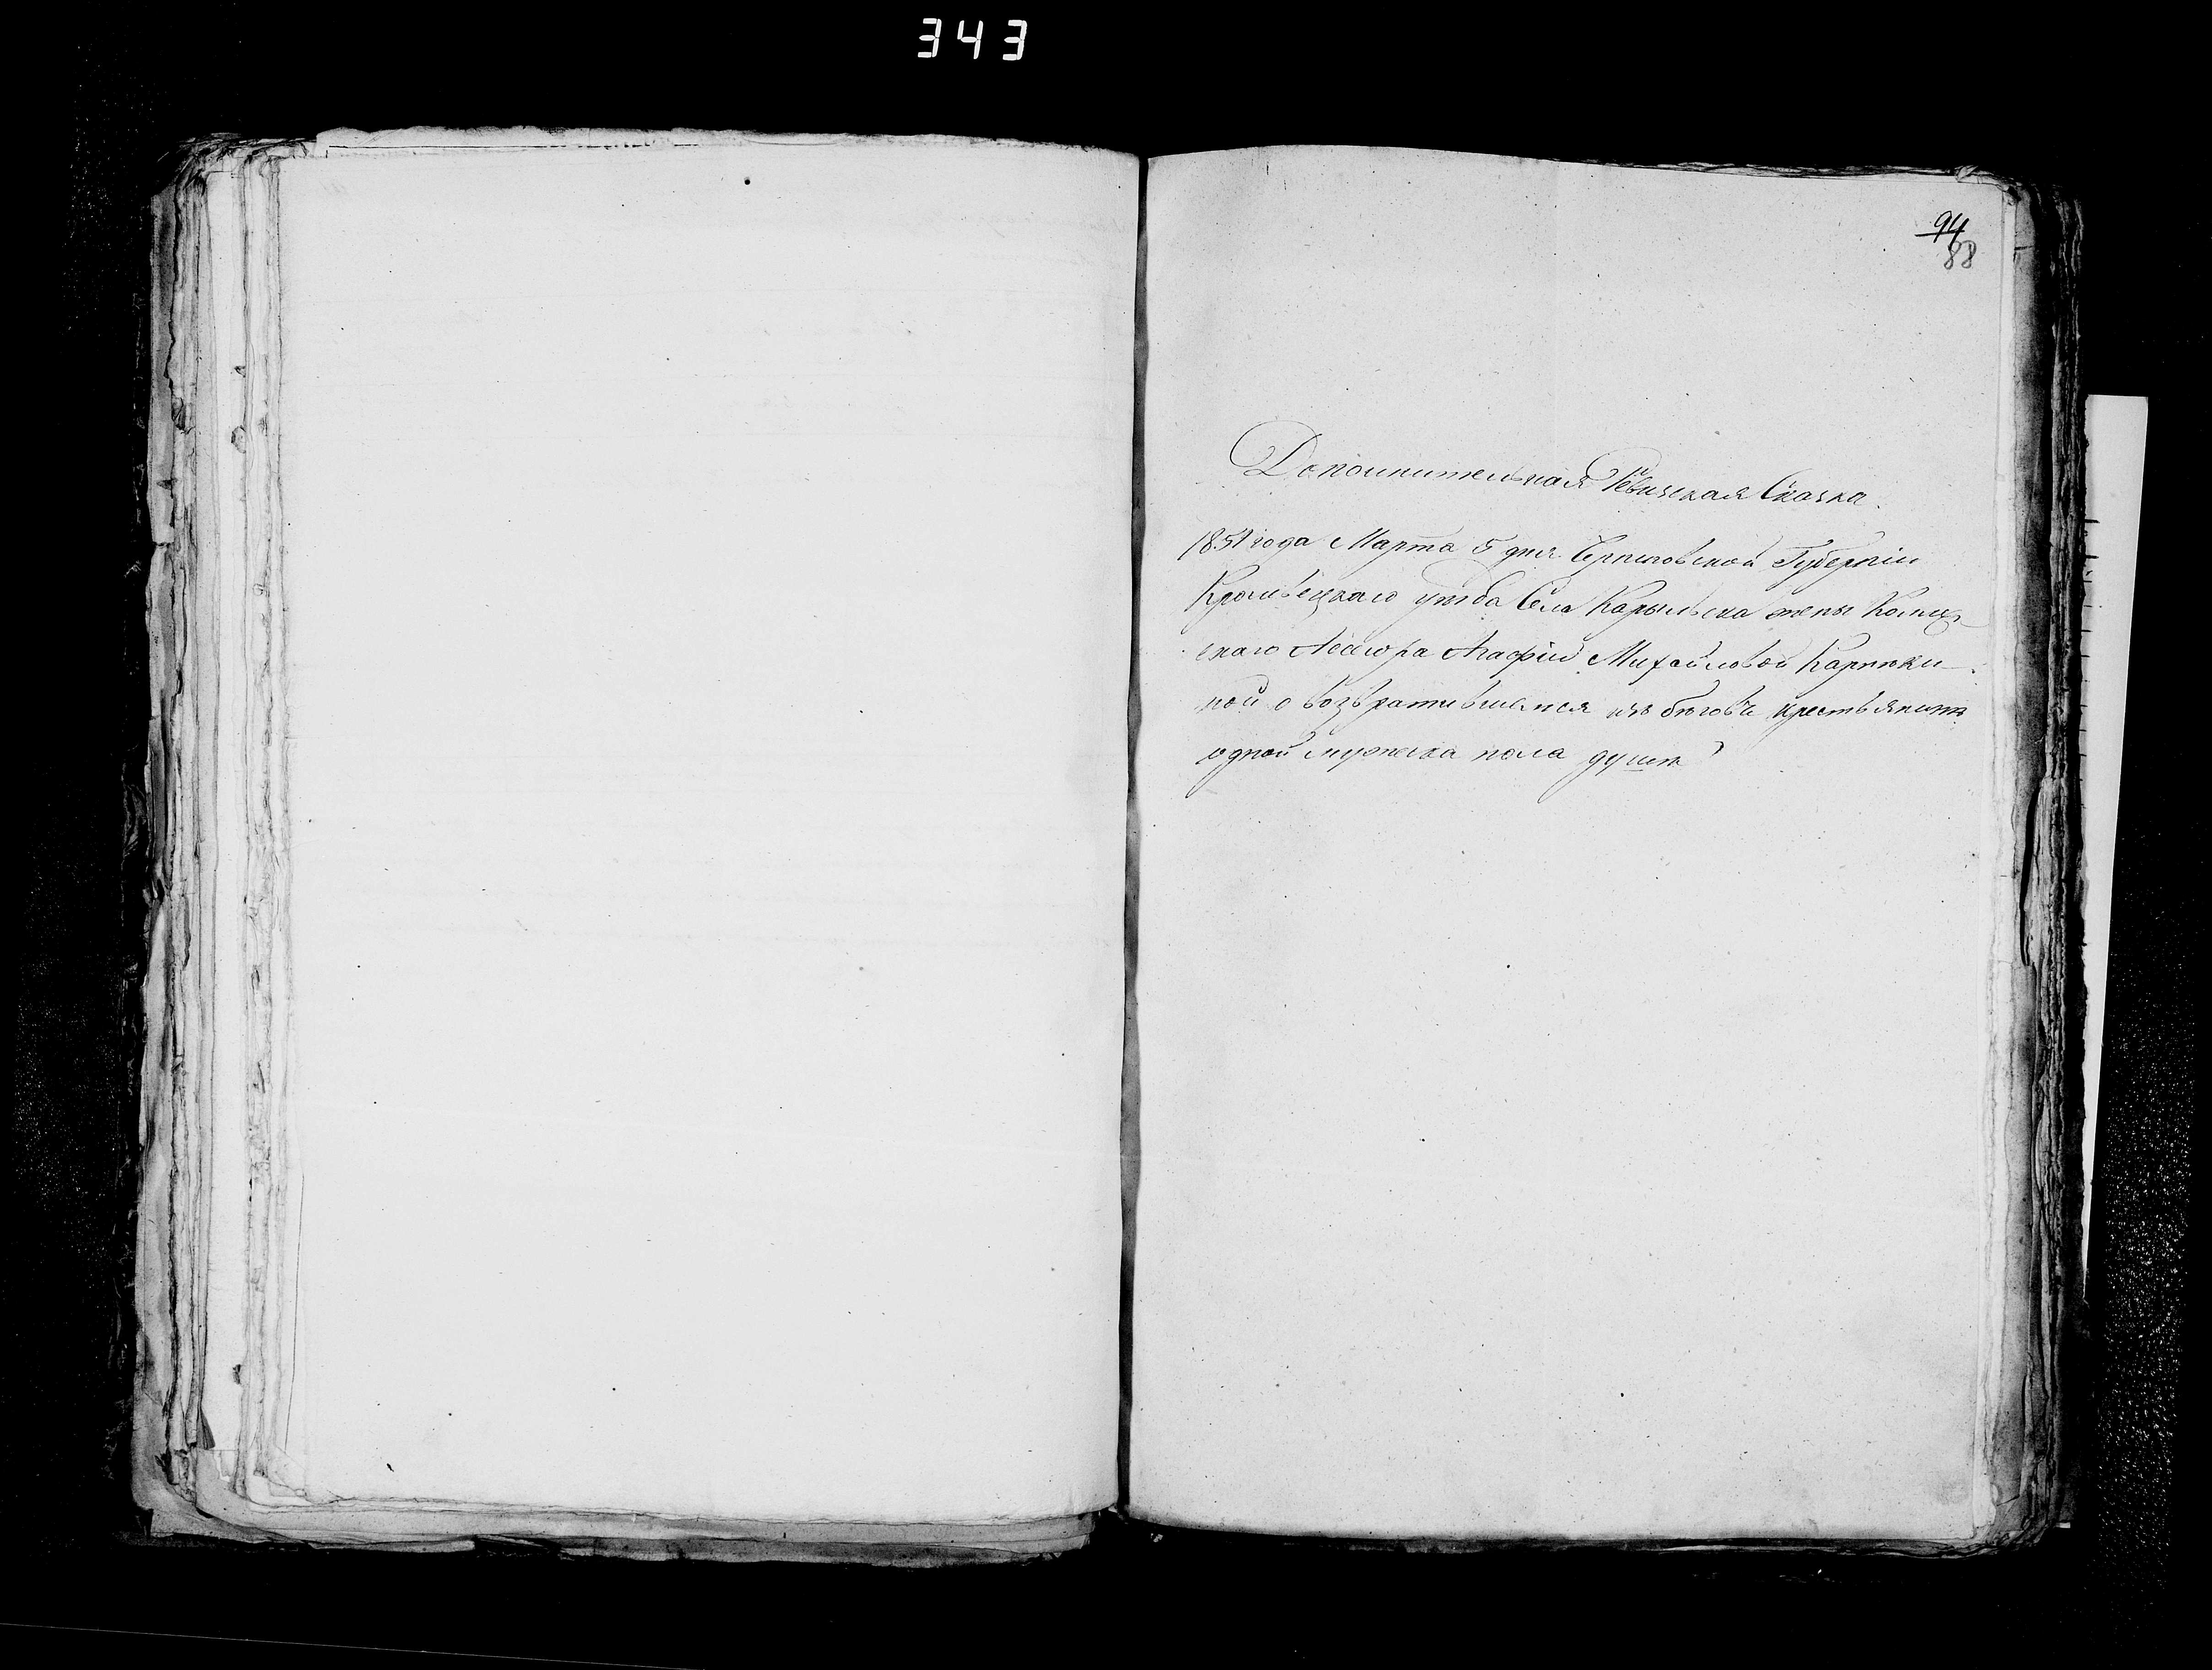 343
94
88
Дополнительная Ревизская Сказка.
1851 года Марта 5 дня Черниговской Губерніи
Кролевецкаго уѣзда Села Карыльска жены Коллеж-
скаго Асесора Агафіи Михайловой Карпеки-
ной о возвратившемся изъ бѣговъ крестьянинѣ
одной мужеска пола душѣ